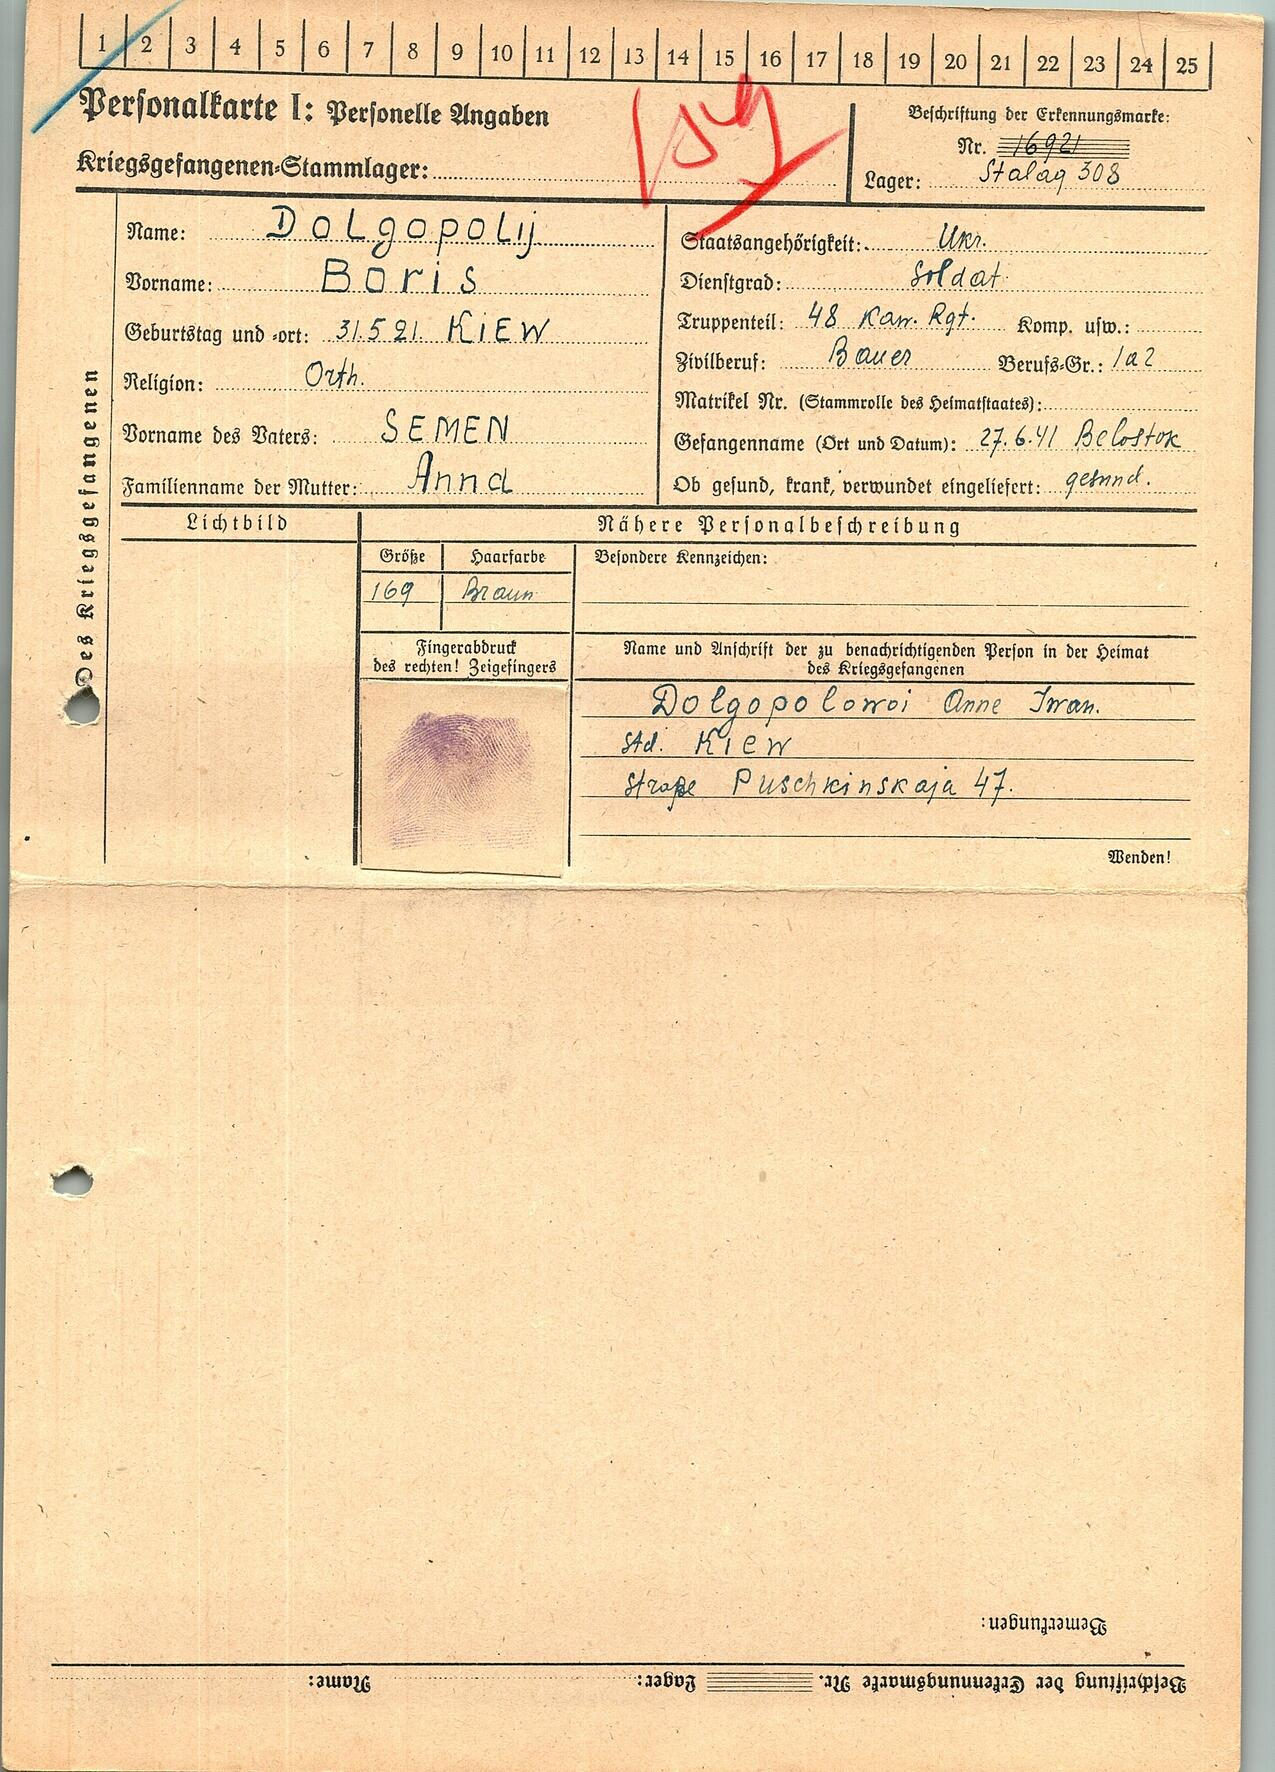 1 2 3 4 5 6 7 8 9 10 11 12 13 14 15 16 17 18 19 20 21 22 23 24 25
Personalkarte I: Personelle Angaben
Kriegsgefangenen-Stammlager:
Beschriftung der Erkennungsmarke:
Nr. 16921
Lager: Stalag 308
Des Kriegsgefangenen
Name: Dolgopolij
Vorname: Boris
Geburtstag und -ort: 31.5.21. KIEW
Religion: Orth.
Vorname des Vaters: SEMEN
Familienname der Mutter: Anna
Staatsangehörigkeit: Ukr.
Dienstgrad: Soldat
Truppenteil: 48 Kaw. Rgt. Komp. usw.:
Zivilberuf: Bauer Berufs-Gr.: 1a2
Matrikel Nr. (Stammrolle des Heimatstaates):
Gefangenname (Ort und Datum): 27.6.41 Belostok
Ob gesund, krank, verwundet eingeliefert: gesund.
Lichtbild
Nähere Personalbeschreibung
Größe Haarfarbe
169 Braun
Besondere Kennzeichen:
Fingerabdruck
des rechten! Zeigefingers
Name und Anschrift der zu benachrichtigenden Person in der Heimat
des Kriegsgefangenen
Dolgopolowoi Anne Iwan.
Std. Kiew
Straße Puschkinskaja 47.
Wenden!
Bemerkungen:
Beschriftung der Erkennungsmarke Nr. Lager: Name: